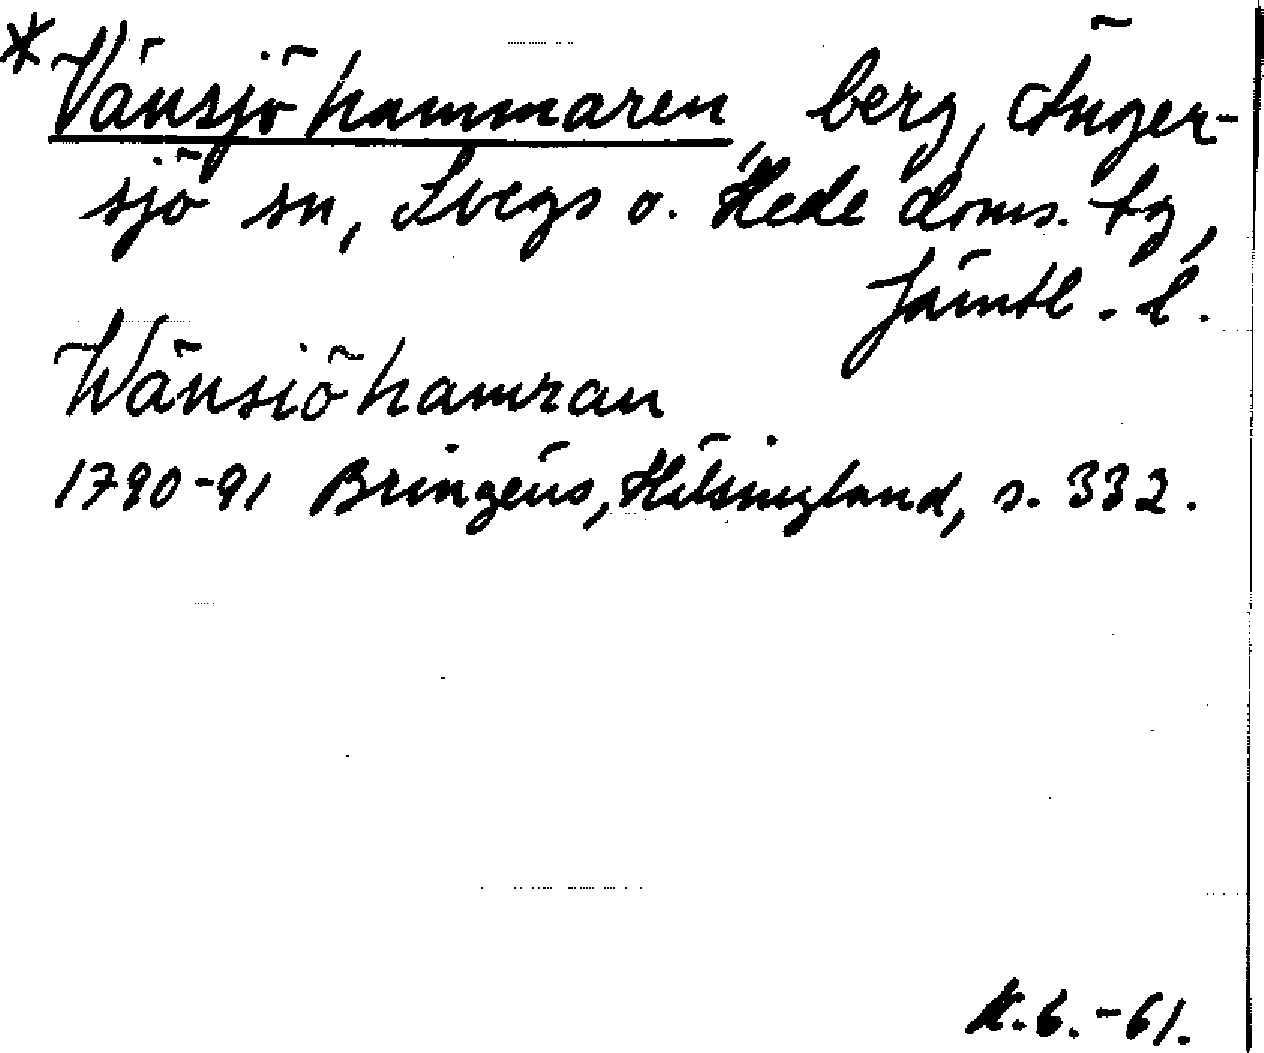 *Vänsjöhammaren, berg, Änger-
sjö sn, Svegs o. Hede doms. tg,
Jämtl. l.
Wänsiöhamran
1790-91 Bringéus, Hälsingland, s. 332.
6.-61.